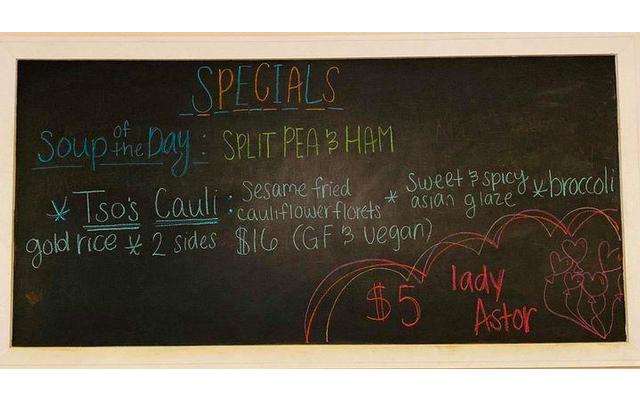 SPECIALS
Soup of the Day: SPLIT PEA & HAM
* Tso's Cauli: Sesame fried cauliflower florets * Sweet & spicy asian glaze * broccoli
gold rice * 2 sides $16 (GF & vegan)
$5 lady Astor